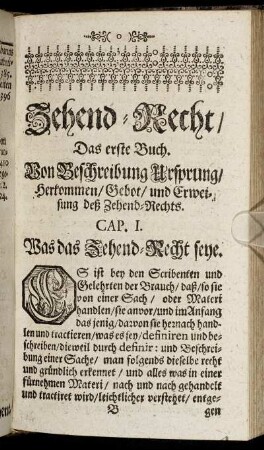 Zehend-Recht/
Das erste Buch.
Von Beschreibung Ursprung/
Herkommen/Gebot/und Erwei-
sung deß Zehend-Rechts.
CAP. I.
Was das Zehend-Recht seye.
ES ist bey den Scribenten und
Gelehrten der Brauch/ daß/so sie
von einer Sach/ oder Materi
handlen/sie anvor/und im Anfang
das jenig/davon sie hernach hand-
len und tractieren/was es sey/definiren und be-
schreiben/dieweil durch definir: und Beschrei-
bung einer Sache/ man folgends dieselbe recht
und gründlich erkennet/ und alles was in einer
fürnehmen Materi/ nach und nach gehandelt
und tractiret wird/leichtlicher verstehet/ entge-
B gen